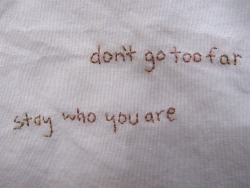 don't go too far
stay who you are